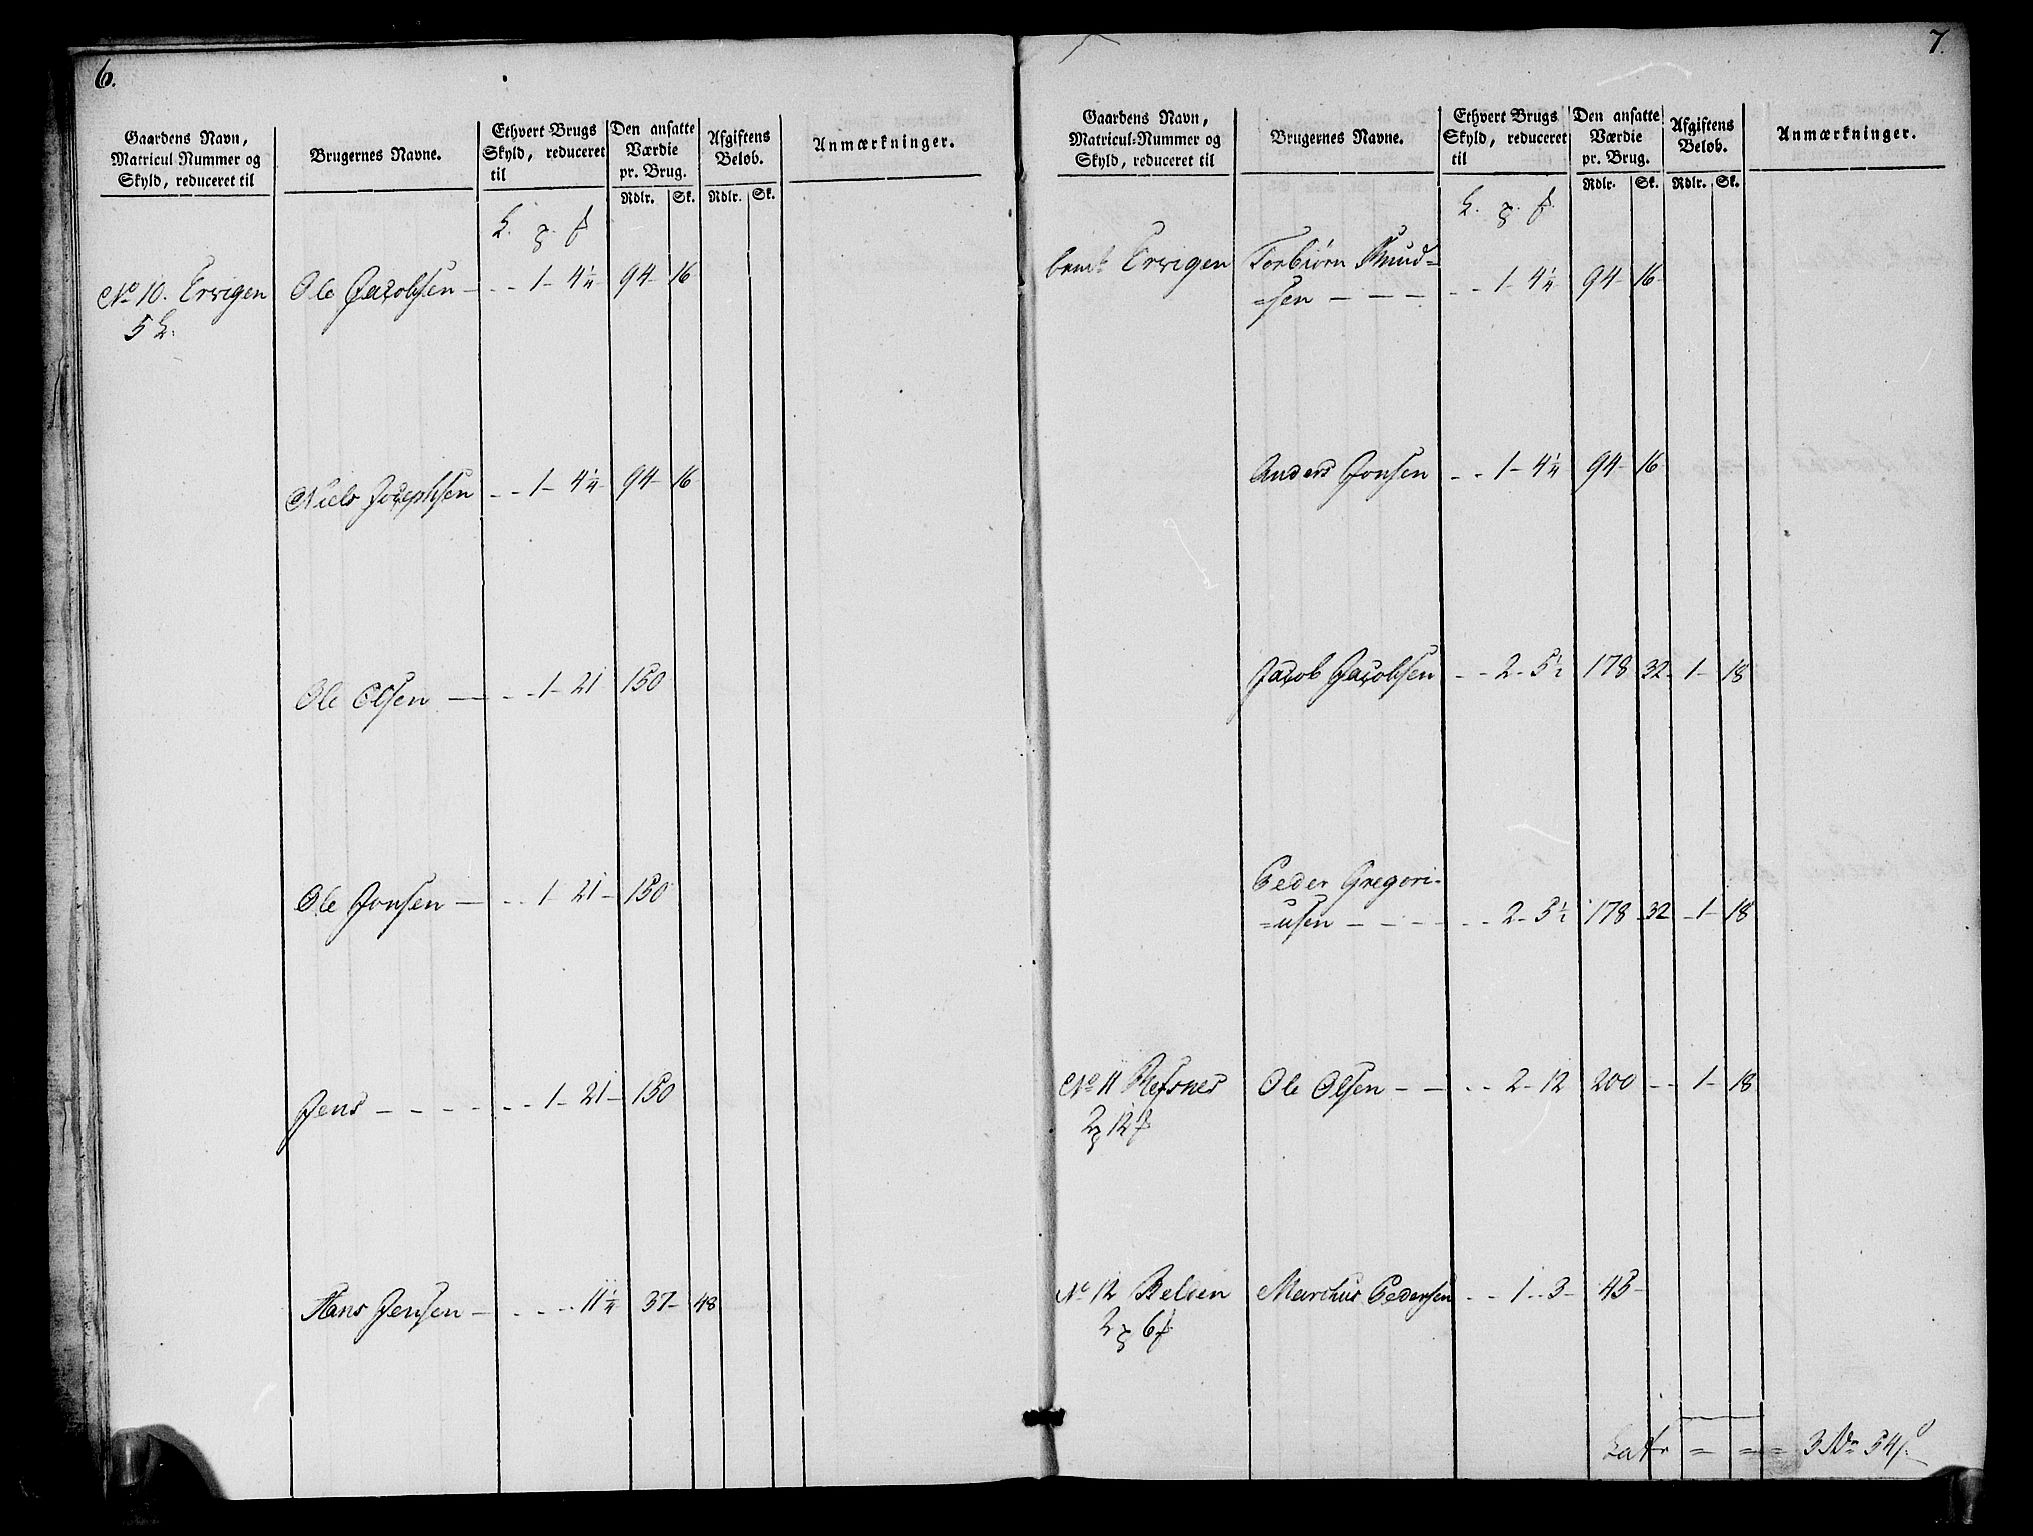 6.
Gaardens Navn,
Matricul Nummer og
Skyld, reduceret til
Brugernes Navne.
Ethvert Brugs
Skyld, reduceret
til
Den ansatte
Værdie
pr. Brug.
Rdlr. Sk.
Afgiftens
Beløb.
Rdlr. Sk.
Anmærkninger.
No 10. Ersigen Ole Jacobsen - - - 1 - 4 1/4 94 - 16
5
Niels Josephsen - - 1 - 4 1/4 94 - 16
Ole Olsen - - - 1 - 21 150
Ole Jonsen - - - 1 - 21 - 150
Jens - - - - - - 1 - 21 - 150
Hans Jensen - - - - 11 1/4 37 - 48
7.
Gaardens Navn,
Matricul-Nummer og
Skyld, reduceret til
Brugernes Navne.
Ethvert Brugs
Skyld, reduceret
til
Den ansatte
Værdie
pr. Brug.
Rdlr. Sk.
Afgiftens
Beløb.
Rdlr. Sk.
Anmærkninger.
Ersigen Torbiørn Knud=
=sen - - - - - 1 - 4 1/4 94 - 16
Anders Jonsen - - 1 - 4 1/4 94 - 16
Jacob Jacobsen - - 2 - 5 1/2 178 32 - 1 - 18
Peder Gregori=
=usen - - - - - 2 - 5 1/2 178 - 32 - 1 - 18
No 11 Refsnes Ole Olsen - - - - 2 - 12 200 - - 1 - 18
2 12
No 12 Relden Marchus Pedersen - - 1 - 3 - 45 -
2 6
Latr = = = 3 54